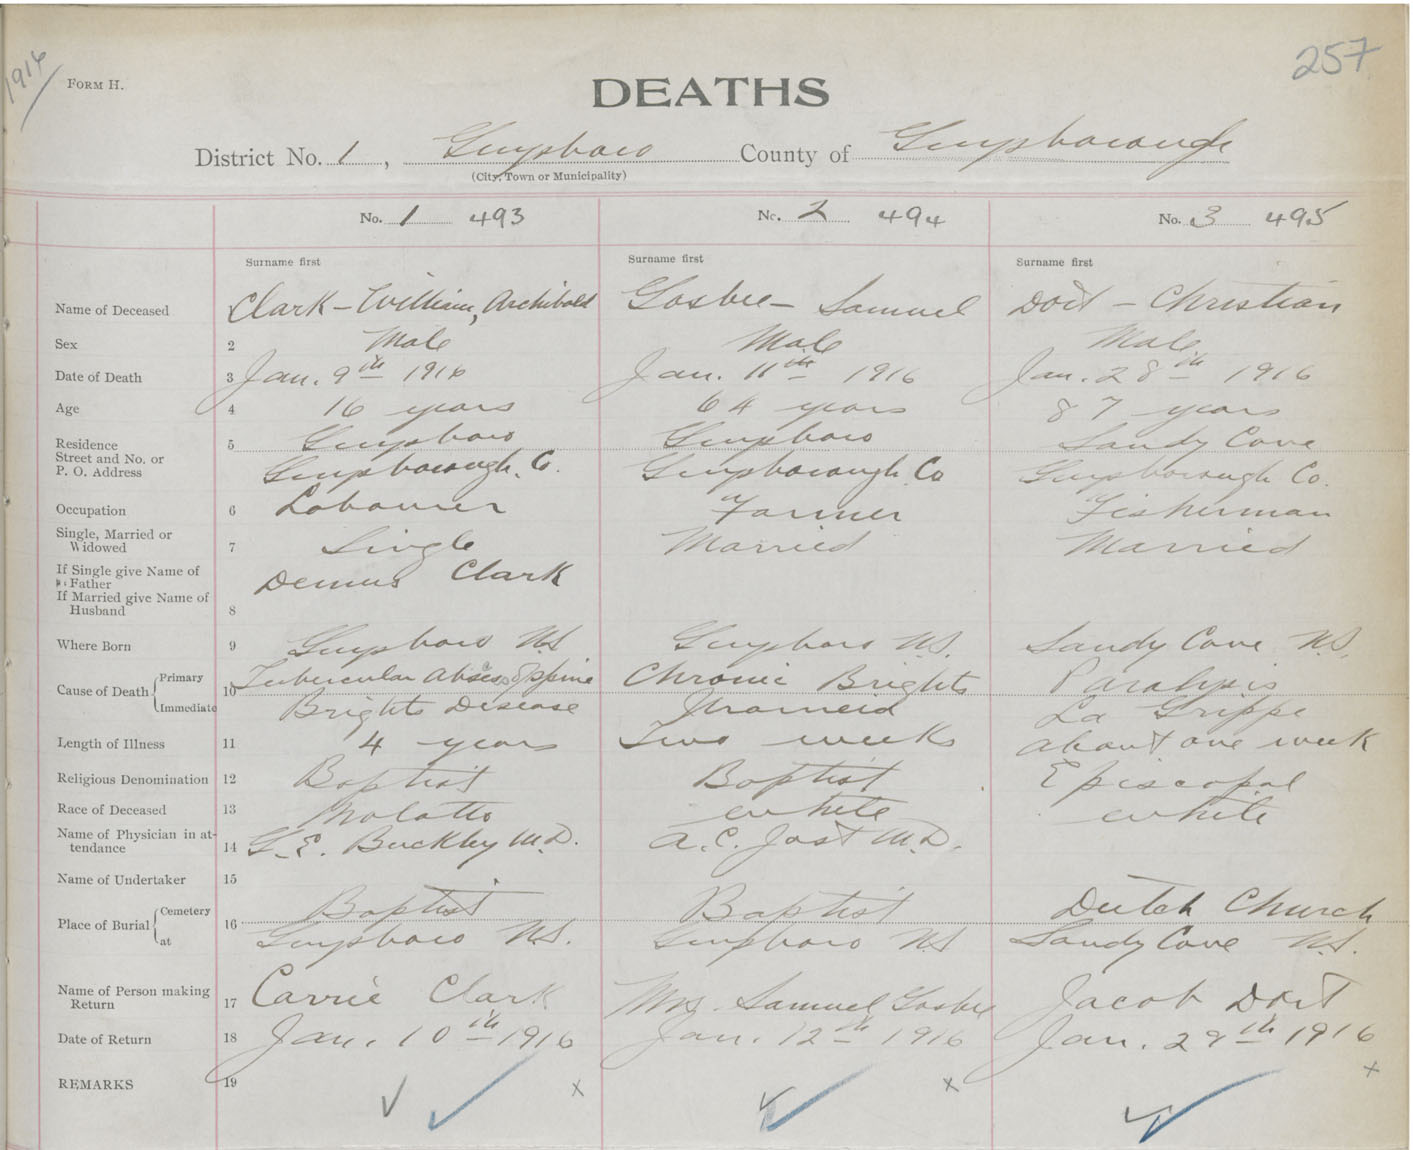 1916
257
FORM H.
DEATHS
District No. 1, Guysboro County of Guysborough
(City, Town or Municipality)
No. 1 493 No. 2 494 No. 3 495
Surname first Surname first Surname first
Name of Deceased Clark - William, Archibald Gosbee - Samuel Dort - Christian
Sex 2 Male Male Male
Date of Death 3 Jan. 9th 1916 Jan. 11th 1916 Jan. 28th 1916
Age 4 16 years 64 years 87 years
Residence 5 Guysboro Guysboro Sandy Cove
Street and No. or
P. O. Address Guysborough Co. Guysborough Co Guysborough Co.
Occupation 6 Labourer Farmer Fisherman
Single, Married or
Widowed 7 Single Married Married
If Single give Name of
Father Demus Clark
If Married give Name of
Husband 8
Where Born 9 Guysboro N.S. Guysboro N.S. Sandy Cove N.S.
Cause of Death Primary 10 Tubercular Abscess Spine Chronic Brights Paralysis
Immediate Brights Disease La Grippe
Length of Illness 11 4 years Two weeks about one week
Religious Denomination 12 Baptist Baptist Episcopal
Race of Deceased 13 Molatto white white
Name of Physician in at-
tendance 14 G. E. Buckley M.D. A. C. Jost M.D.
Name of Undertaker 15
Place of Burial Cemetery 16 Baptist Baptist Dutch Church
at Guysboro N.S. Guysboro N.S Sandy Cove N.S.
Name of Person making
Return 17 Carrie Clark Mrs. Samuel Gosbee Jacob Dort
Date of Return 18 Jan. 10th 1916 Jan. 12th 1916 Jan. 29th 1916
REMARKS 19 x x x